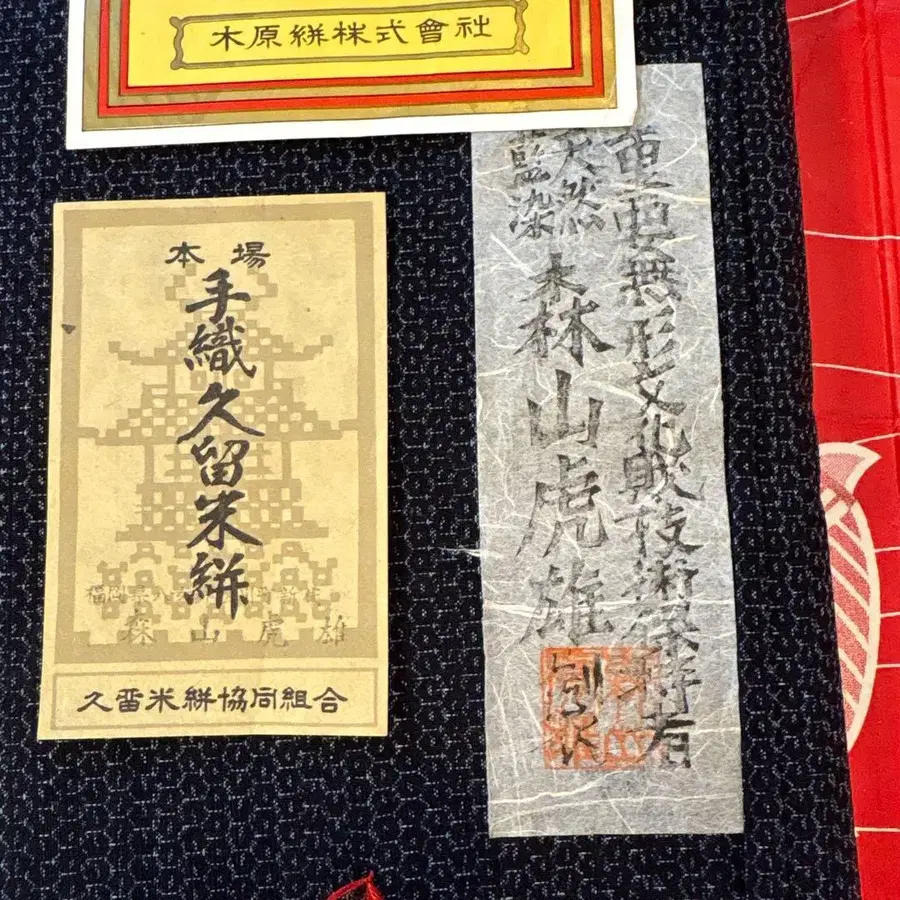 木原絣株式會社
本場
手織久留米絣
森山虎雄
久留米絣協同組合
重要無形文化財技術保持者
天然
藍染
森山虎雄